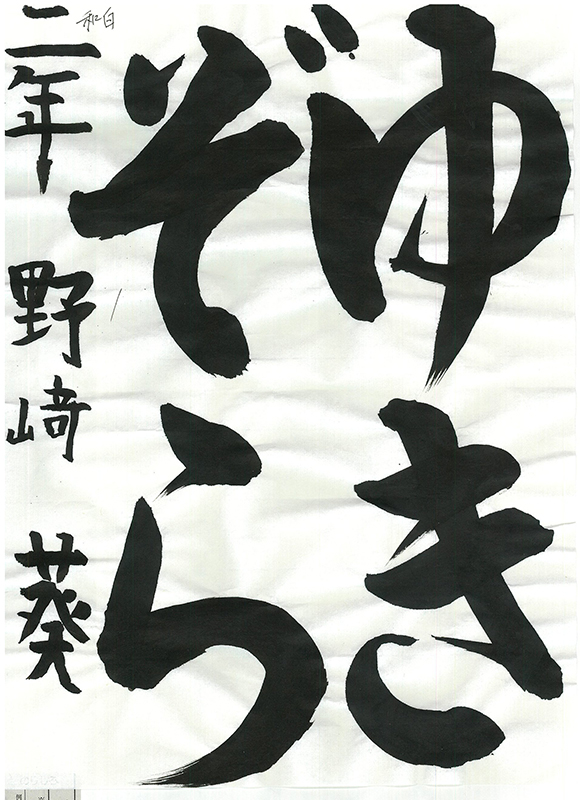 ゆき
ぞら
二年 野﨑 葵
和白